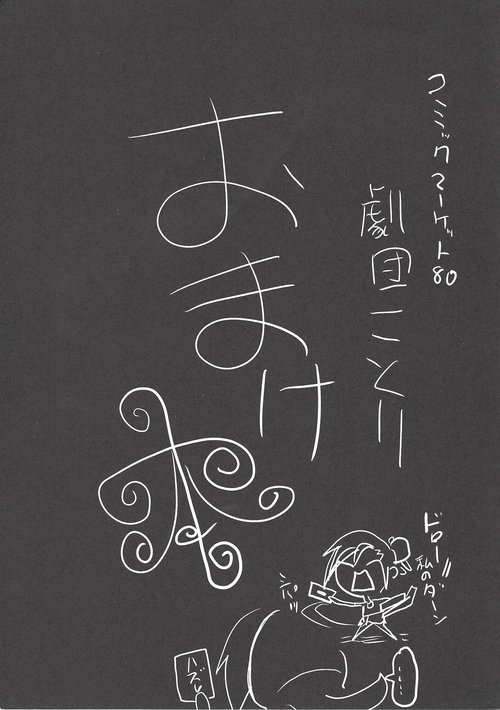 コミックマーケット80
劇団ことり
おまけ
本
ドロー!!
私のターン
ハズレ